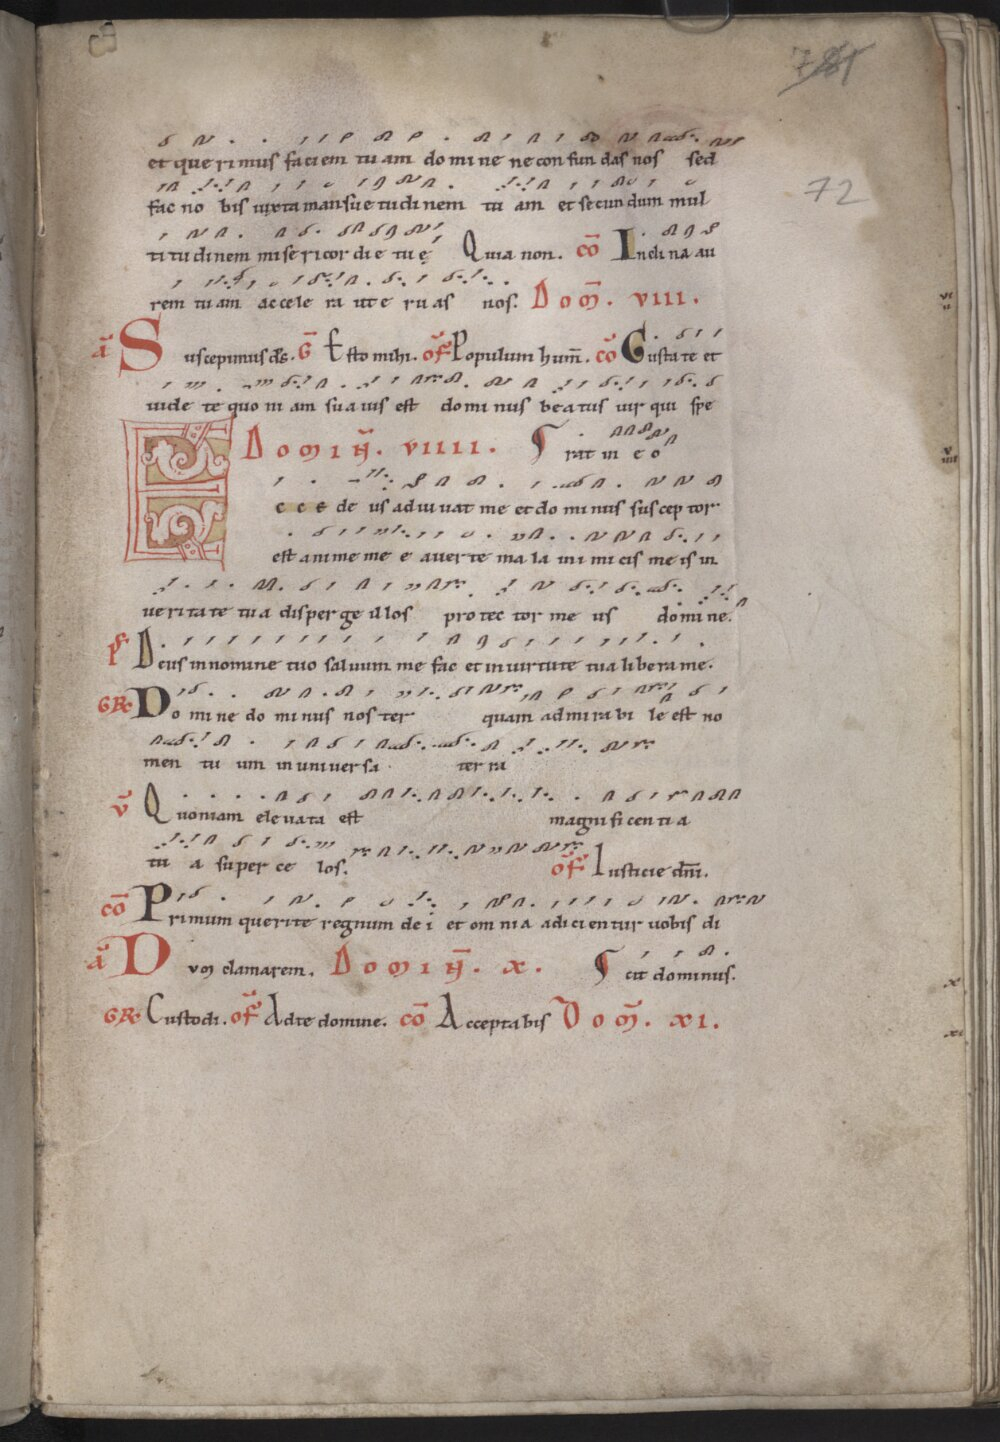 781
72
et querimus faciem tu am do mi ne ne con fun das nos sed
fac no bis iuxta mansue tudi nem tu am et secundum mul
ti tu di nem mi se ri cor di e tu ę Quia non. cō Inclina au
rem tu am accele ra ut e ru as nos. Dom̄. VIII.
ā Suscepimus d̄s. G̅ Esto mihi. of̄ Populum hum̄. cō Gustate et
uide te quo ni am sua uis est do mi nus beatus uir qui spe
Domin̄. VIIII. rat in e o
E c c e de us adiuuat me et do mi nus suscep tor
est anime me e auerte ma la ini mi cis me is in
ueritate tu a disperge illos pro tec tor me us domi ne.
p̄s Deus in nomine tuo saluum me fac et in uirtute tua libera me.
GR Do mi ne do mi nus nos ter quam admira bi le est no
men tu um in uniuersa ter ra
v̄ Quoniam eleuata est magnificentia
tu a super ce los. of̄ Iusticie dn̄i.
cō Primum querite regnum de i et om ni a adicientur uobis di
ā Dum clamarem. Domin̄. X. cit dominus.
GR Custodi. of̄ Ad te domine. cō Acceptabis Dom̄. XI.